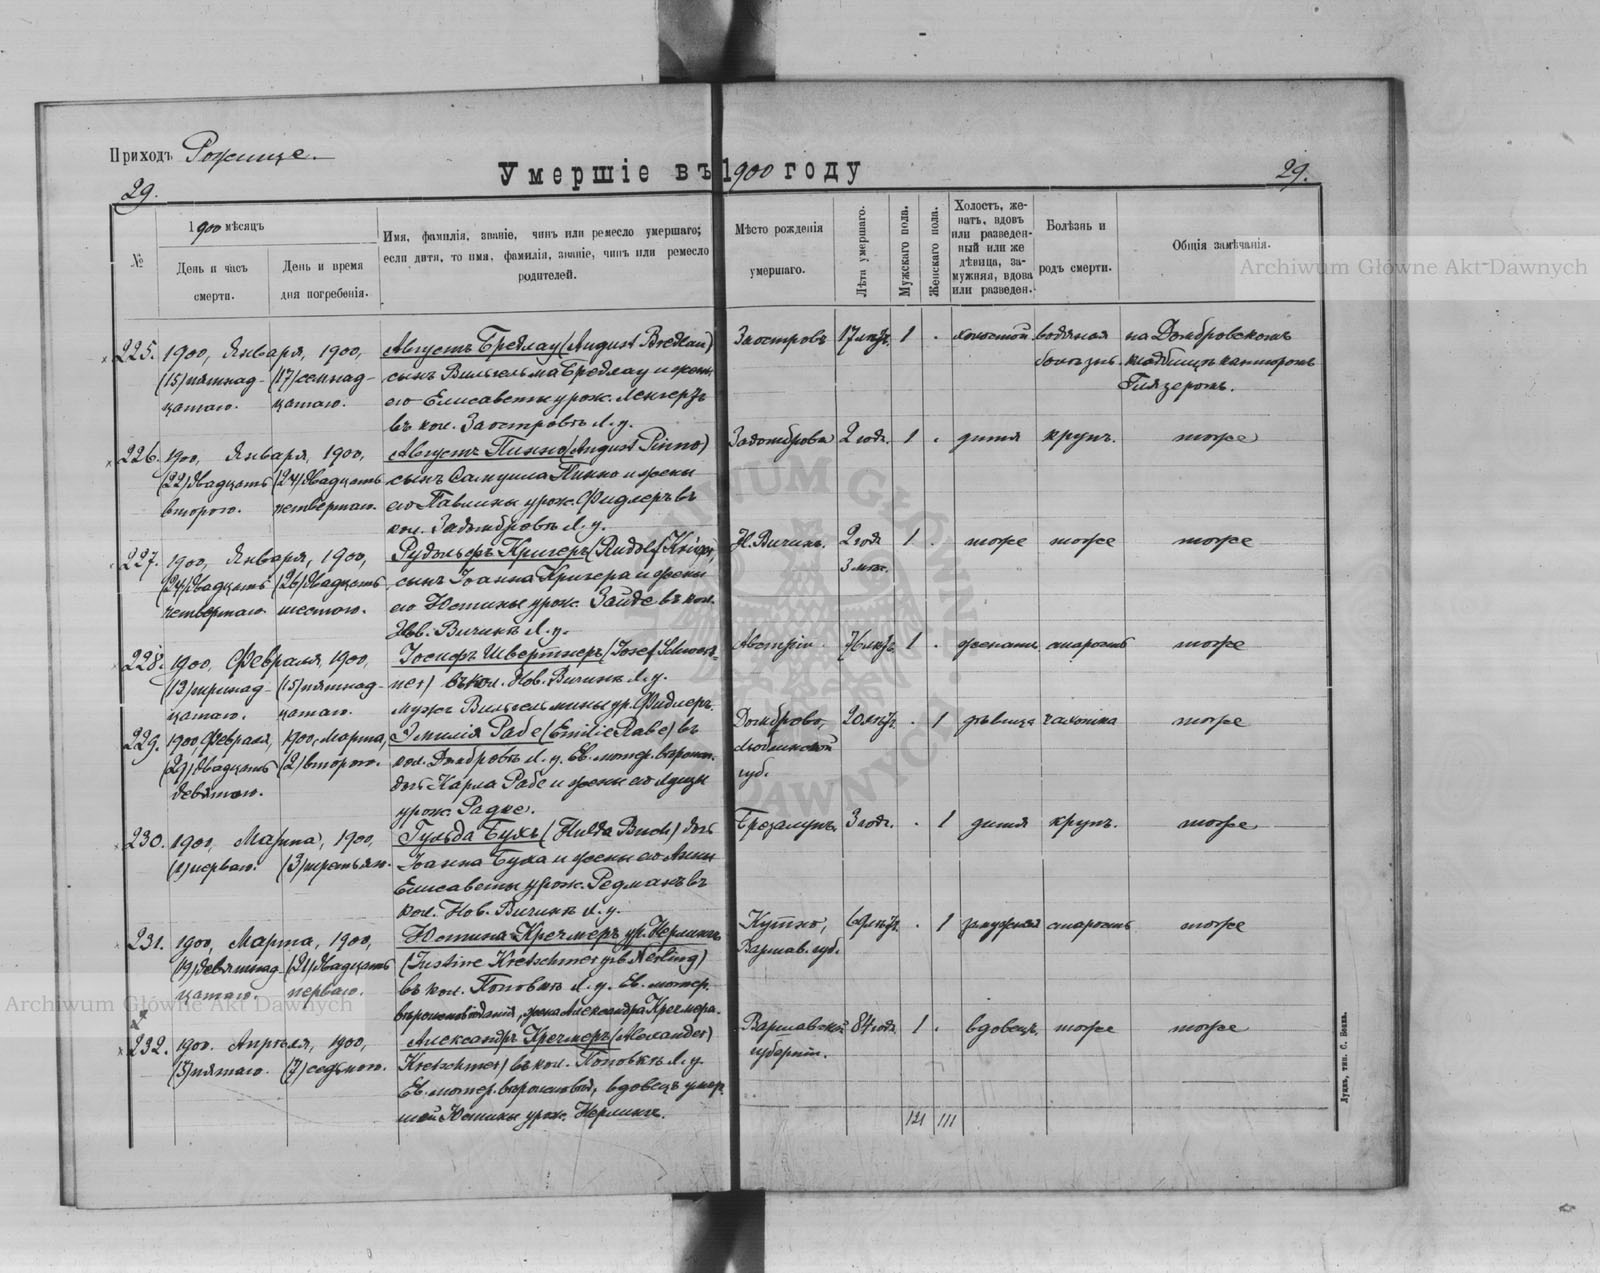 Приходъ Рожище.
Умершіе въ 1900 году
29.
29.
№
1900 мѣсяцъ
День и часъ
смерти.
День и время
дня погребенія.
Имя, фамилія, званіе, чинъ или ремесло умершаго;
если дитя, то имя, фамилія, званіе, чинъ или ремесло
родителей.
Мѣсто рожденія
умершаго.
Лѣта умершаго.
Мужскаго пола.
Женскаго пола.
Холостъ, же-
натъ, вдовъ
или разведен-
ный или же
дѣвица, за-
мужняя, вдова
или разведен.
Болѣзнь и
родъ смерти.
Общія замѣчанія.
Archiwum Główne Akt Dawnych
225. 1900, Января, 1900, Августъ Бредлау (August Bredlau) Заостровъ 17 лѣтъ. 1 . холостой водяная на Домбровскомъ
(15) пятнад- (17) семнад- сынъ Вильгельма Бредлау и жены болѣзнь. кладбищѣ канторомъ
цатаго. цатаго. его Елисаветы урож. Ленгертъ Глязеромъ.
въ кол. Заостровѣ Л. у.
226. 1900, Января, 1900, Августъ Пинно (August Pinno) Задомброва 2 года. 1 . дитя крупъ. тоже
(22) двадцать (24) двадцать сынъ Самуила Пинно и жены
второго. четвертаго. его Павлины урож. Фидлеръ въ
кол. Задомбровѣ Л. у.
227. 1900, Января, 1900, Рудольфъ Кригеръ (Rudolf Krüger) Н. Вичинъ. 2 года 1 . тоже тоже тоже
(24) двадцать (26) двадцать сынъ Іоанна Кригера и жены 3 мѣс.
четвертаго шестого. его Юстины урож. Зайде въ кол.
Нов. Вичинѣ Л. у.
228. 1900, Февраля, 1900, Іосифъ Швертнеръ (Josef Schwert- Австріи. 76 лѣтъ 1 . женатъ старость тоже
(13) тринад- (15) пятнад- ner) въ кол. Нов. Вичинѣ Л. у.
цатаго. цатаго. мужъ Вильгельмины ур. Фидлеръ.
229. 1900, Февраля, 1900, Марта, Эмилія Рабе (Emilie Rabe) въ Домброво, 20 лѣтъ . 1 дѣвица чахотка тоже
(29) двадцать (2) второго. кол. Домбровѣ Л. у. Ев. лютер. вѣроисп. Люблинской
девятаго. дочь Карла Рабе и жены его Луизы губ.
урож. Радке.
230. 1900, Марта, 1900, Гульда Бухъ (Hulda Buch) дочь Брезалупъ. 3 года. . 1 дитя крупъ. тоже
(1) перваго. (3) третьяго. Іоанна Буха и жены его Анны
Елисаветы урож. Редманъ въ
кол. Нов. Вичинѣ Л. у.
231. 1900, Марта, 1900, Юстина Кречмеръ ур. Нерлингъ Кутно, 69 лѣтъ. . 1 замужняя старость тоже
(19) девятнад- (21) двадцать (Justine Kretschmer geb. Nerling) Варшав. губ.
цатаго. перваго. въ кол. Поповкѣ Л. у. Ев. лютер.
вѣроисповѣданія, жена Александра Кречмера.
Archiwum Główne Akt Dawnych
232. 1900. Апрѣля, 1900, Александръ Кречмеръ (Alexander Варшавской 84 года 1 . вдовецъ тоже тоже
(5) пятаго. (7) седьмого. Kretschmer) въ кол. Поповкѣ Л. у. губерніи.
Ев. лютер. вѣроисповѣд., вдовецъ умер-
шей Юстины урож. Нерлингъ.
121 111
Луцкъ, тип. С. Іонка.
ARCHIWUM GŁÓWNE AKT DAWNYCH